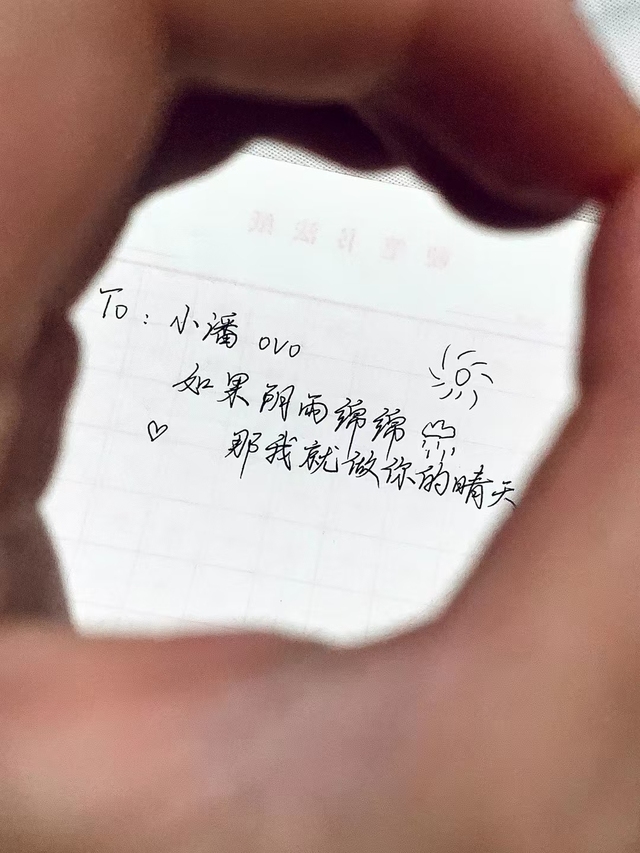 硬笔书法纸
To：小潘 ovo
如果阴雨绵绵
那我就做你的晴天